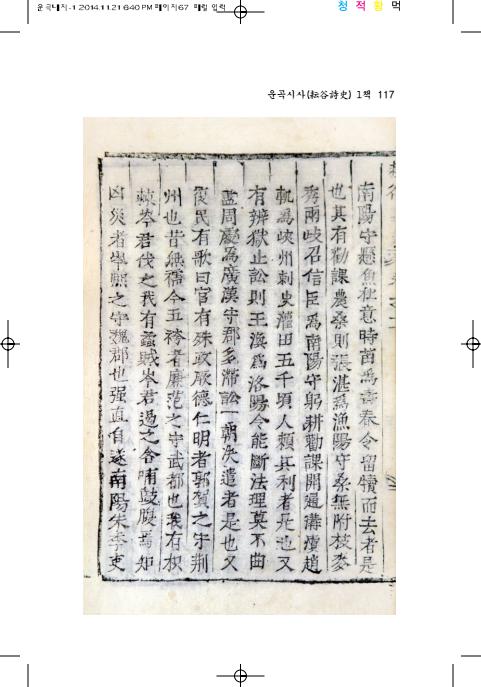 운곡내지-1 2014.11.21 6:40 PM 페이지67 매일 입력
청 적 황 먹
운곡시사(耘谷詩史) 1책 117
南陽守懸魚杜意時苗爲壽春令留犢而去者是
也其有勸課農桑則張湛爲漁陽守桑無附枝麥
秀兩歧召信臣爲南陽守躬耕勸課開通溝瀆趙
軌爲峽州刺史灌田五千頃人賴其利者是也又
有辨獄止訟則王渙爲洛陽令能斷法理莫不曲
盡周慶爲廣漢守郡多滯訟一朝決遣者是也又
復民有歌曰官有殊政厥德仁明者郭賀之守荊
州也昔無襦今五袴者廉范之守武都也我有枳
棘岑君伐之我有蟊賊岑君遏之含哺鼓腹焉知
凶災者岑熙之守魏郡也强直自遂南陽朱季吏